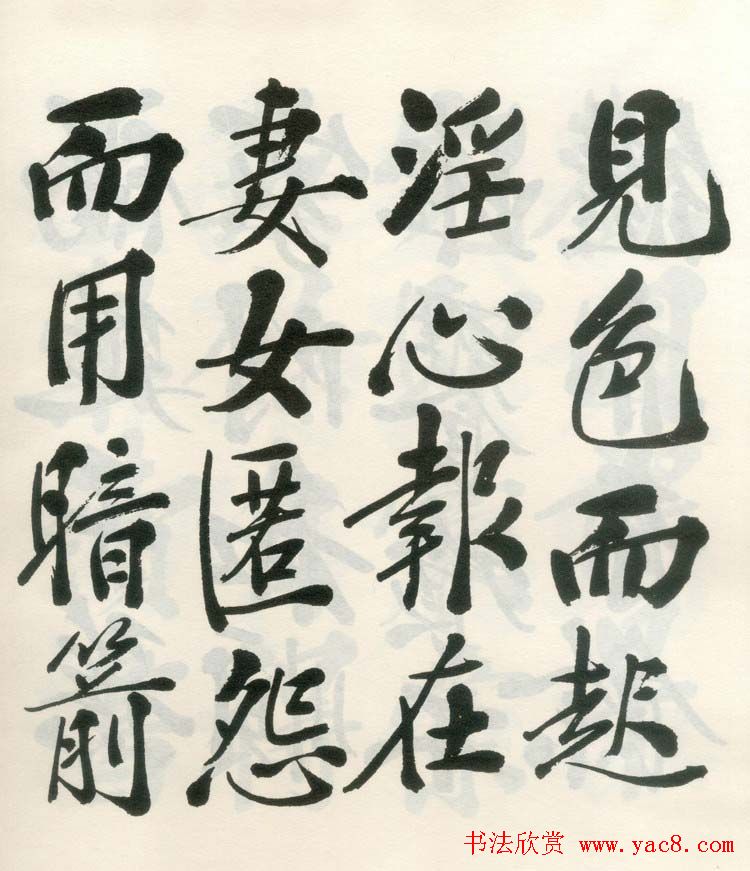 見色而起
淫心報在
妻女匿怨
而用暗箭
书法欣赏 www.yac8.com